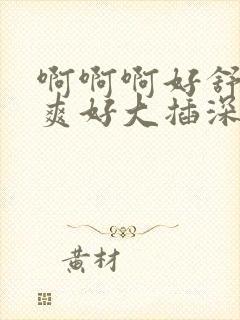 啊啊啊好舒
爽好大插深
黄材